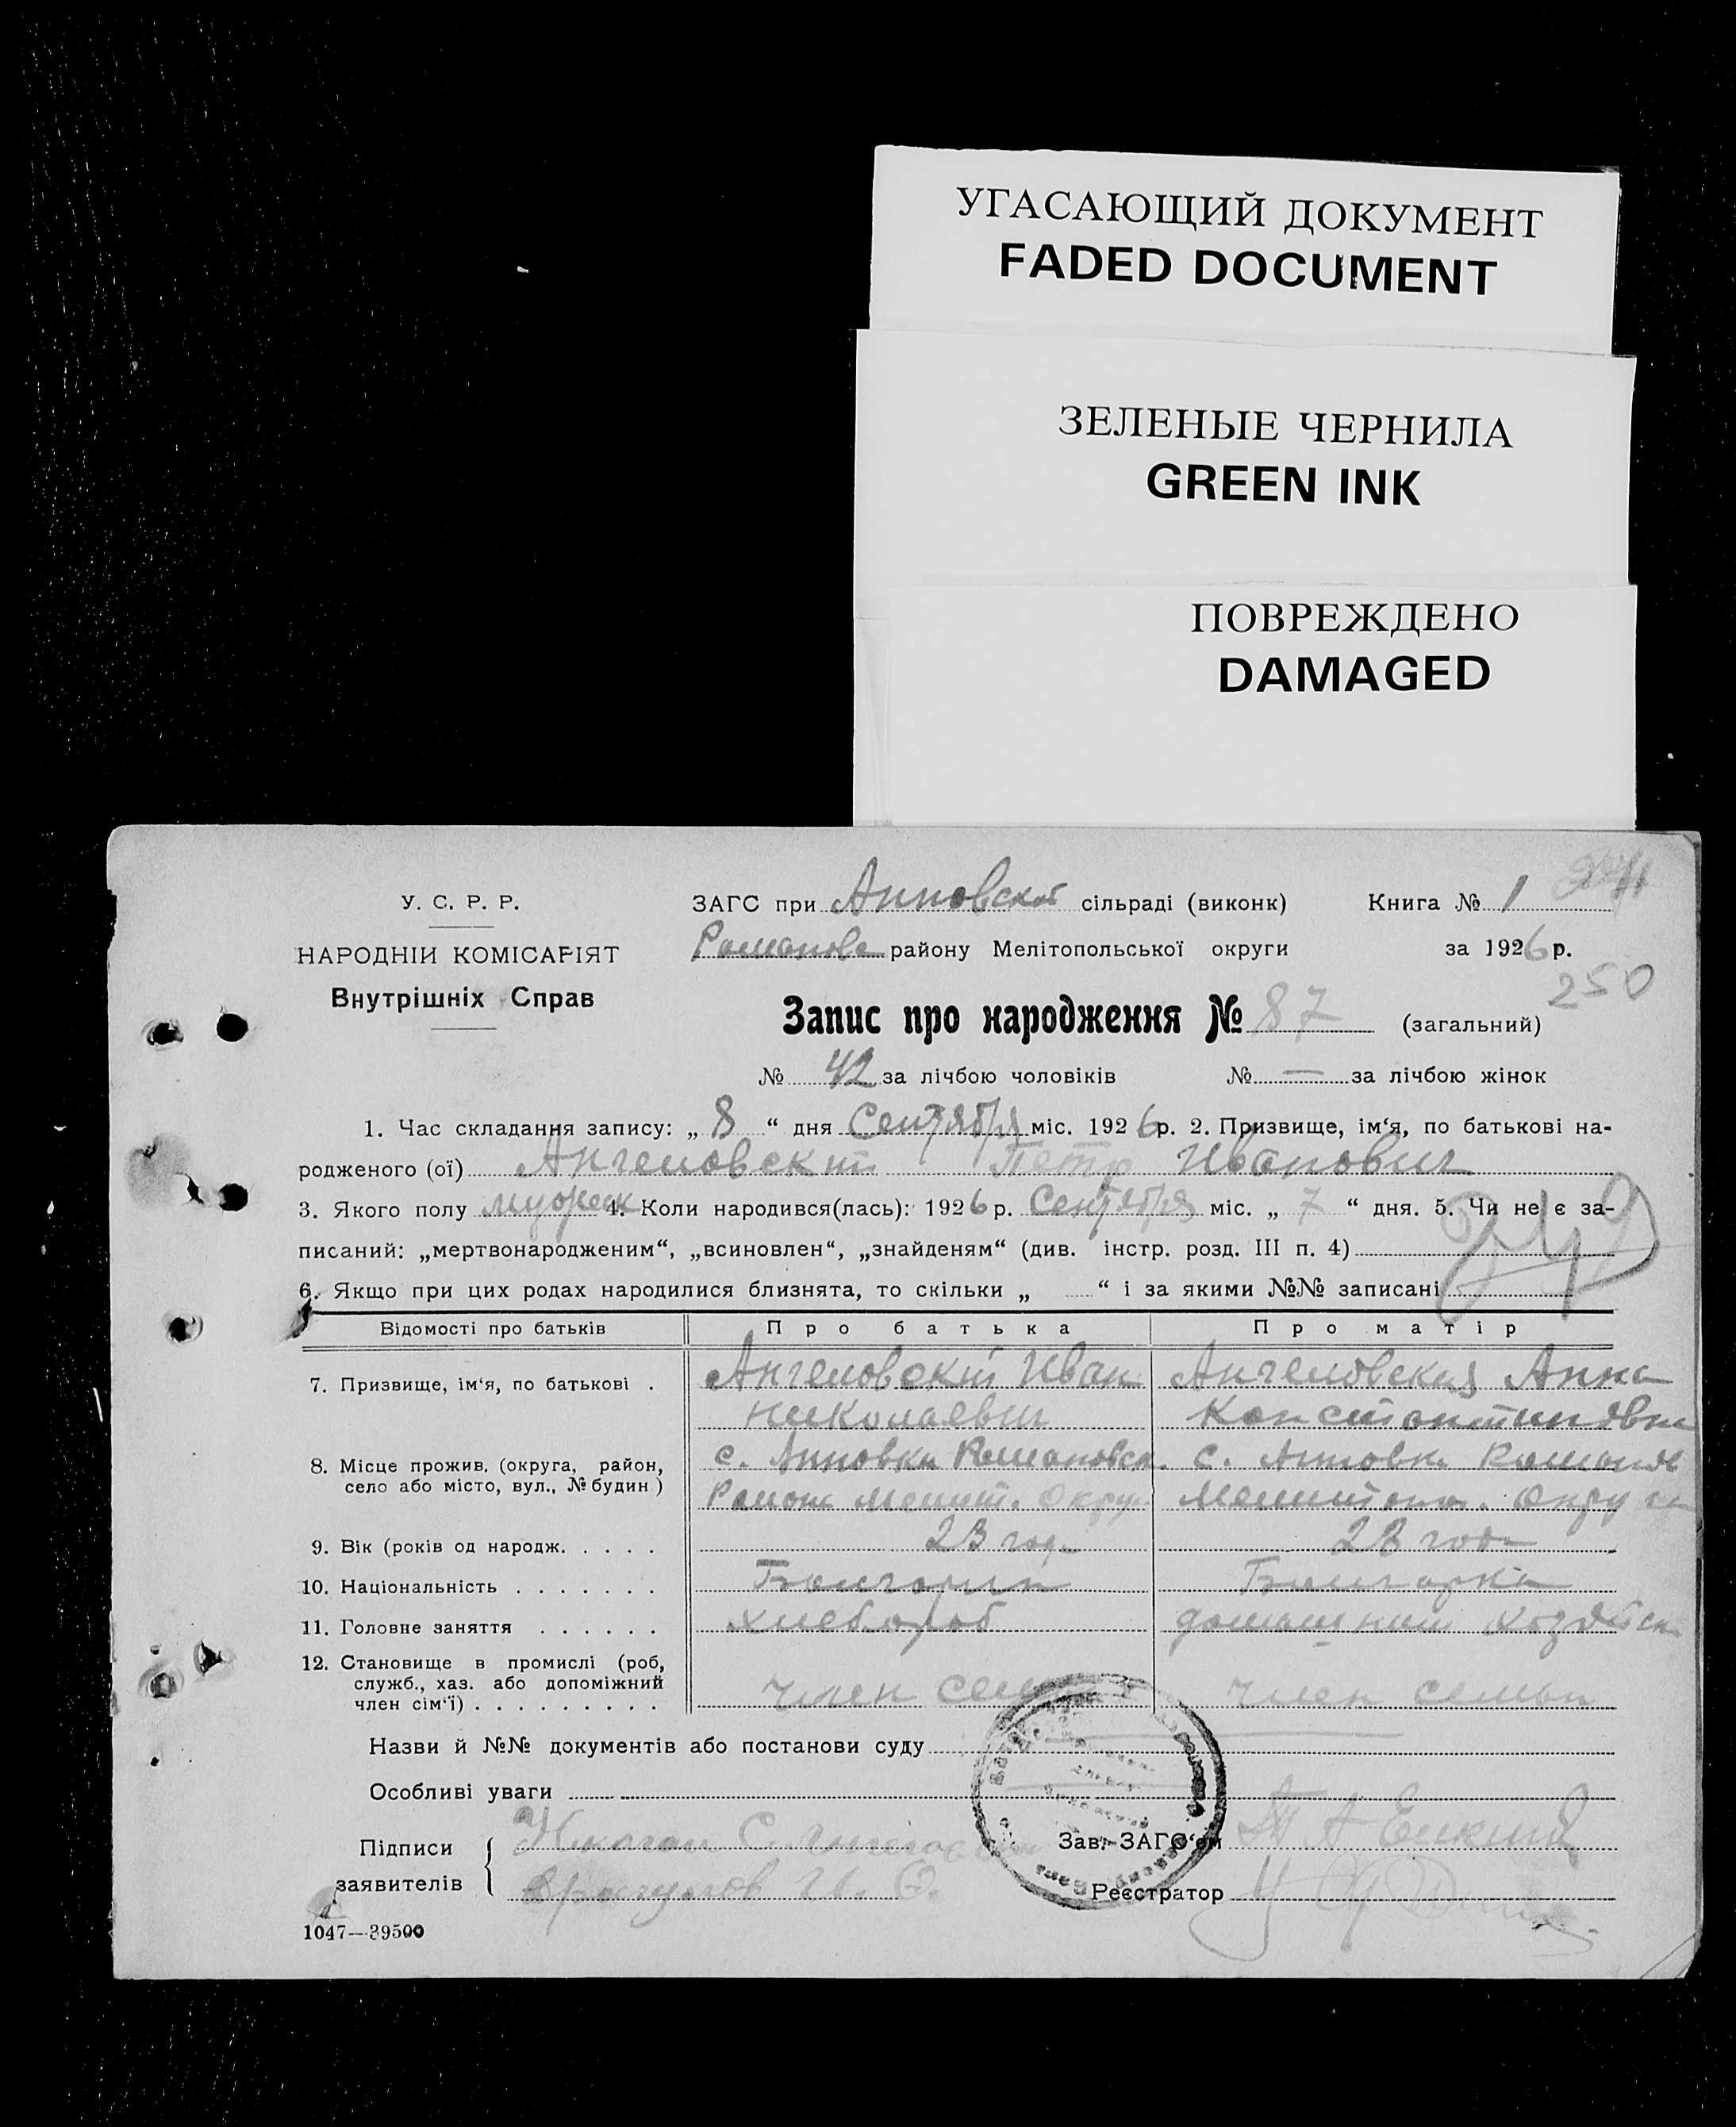 УГАСАЮЩИЙ ДОКУМЕНТ
FADED DOCUMENT
ЗЕЛЕНЫЕ ЧЕРНИЛА
GREEN INK
ПОВРЕЖДЕНО
DAMAGED
У. С. Р. Р.
НАРОДНІЙ КОМІСАРІЯТ
Внутрішніх Справ
ЗАГС при Анновской сільраді (виконк) Книга № 1
Романовс району Мелітопольської округи за 1926 р.
250
Запис про народження № 87 (загальний)
№ 42 за лічбою чоловіків № — за лічбою жінок
1. Час складання запису: „ 8 “ дня Сентября міс. 1926 р. 2. Призвище, ім‘я, по батькові на-
родженого (ої) Ангеловский Петр Иванович
3. Якого полу мужск 4. Коли народився(лась): 1926 р. Сентября міс. „ 7 “ дня. 5. Чи не є за-
писаний: „мертвонародженим“, „всиновлен“, „знайденям“ (див. інстр. розд. III п. 4)
6. Якщо при цих родах народилися близнята, то скільки „ “ і за якими №№ записані
249
Відомості про батьків Про батька Про матір
7. Призвище, ім‘я, по батькові . Ангеловский Иван Ангеловская Анна
Николаевич Константиновна
8. Місце прожив. (округа, район, с. Анновка Романовск. с. Анновка Романов
село або місто, вул., № будин) Района Мелит. Окру Мелитопол. Округа
9. Вік (років од народж. . . . . 23 года 28 года
10. Національність . . . . . . . Болгарин Болгарка
11. Головне заняття . . . . . . хлебороб домашнии хозяйск
12. Становище в промислі (роб,
служб., хаз. або допоміжний
член сім‘ї) . . . . . . . . . член семьи член семьи
Назви й №№ документів або постанови суду
Особливі уваги
Підписи
заявителів
Зав. ЗАГС‘ом
Реєстратор
1047—39500